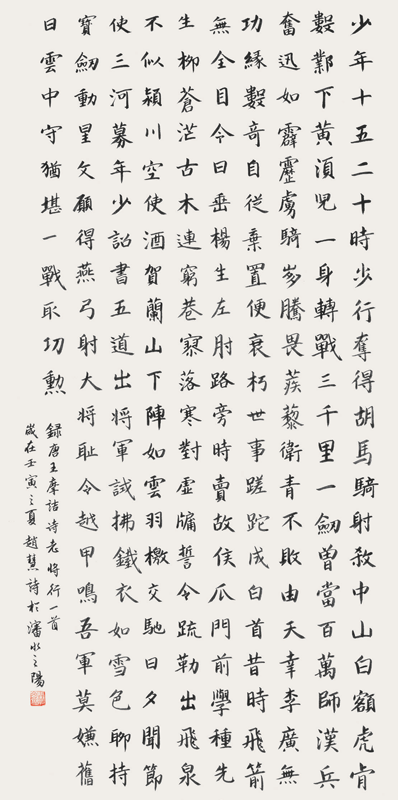 少年十五二十時步行奪得胡馬騎射殺中山白額虎肯
數鄴下黃須兒一身轉戰三千里一劍曾當百萬師漢兵
奮迅如霹靂虜騎崩騰畏蒺藜衛青不敗由天幸李廣無
功緣數奇自從棄置便衰朽世事蹉跎成白首昔時飛箭
無全目今日垂楊生左肘路旁時賣故侯瓜門前學種先
生柳蒼茫古木連窮巷寥落寒對虛牖誓令疏勒出飛泉
不似潁川空使酒賀蘭山下陣如雲羽檄交馳日夕聞節
使三河募年少詔書五道出將軍試拂鐵衣如雪色聊持
寶劍動星文願得燕弓射大將恥令越甲鳴吾軍莫嫌舊
日雲中守猶堪一戰取功勳
錄唐王摩詰詩老將行一首
歲在壬寅之夏趙慧詩於瀋水之陽